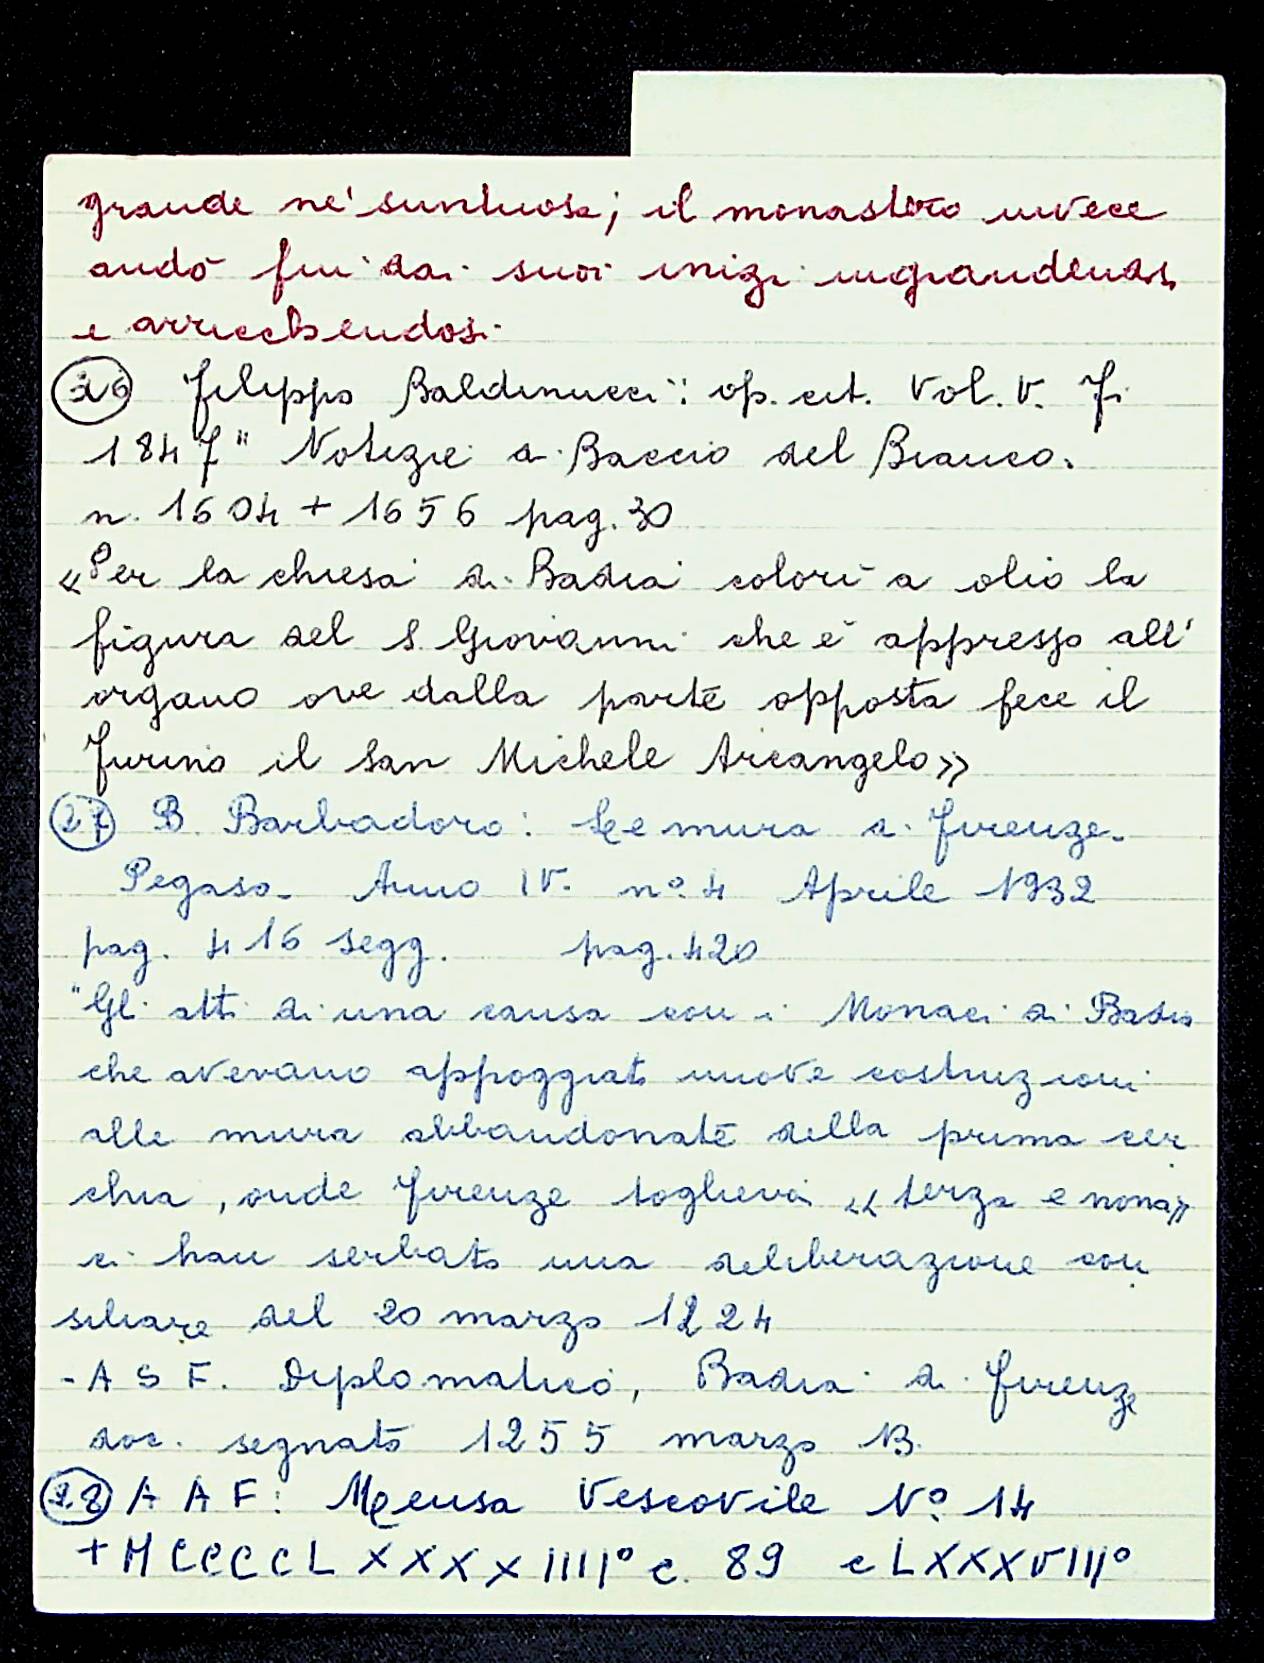 grande ne' suntuosa; il monastero invece
andò fin dai suoi inizi ingrandendosi
e arricchendosi.
26 Filippo Baldinucci: op. cit. Vol. V. Fi
1847 " Notizie di Baccio del Bianco.
n. 1604 + 1656 pag. 30
«Per la chiesa di Badia colorì a olio la
figura del S. Giovanni che è appresso all'
organo ove dalla parte opposta fece il
Furino il San Michele Arcangelo»
27 B. Barbadoro: Le mura di Firenze.
Pegaso. Anno IV. nº 4 Aprile 1932
pag. 416 segg. pag. 420
"Gli atti di una causa con i Monaci di Badia
che avevano appoggiato nuove costruzioni
alle mura abbandonate della prima cer
chia, onde Firenze toglieva «terza e nona»
ci han serbato una deliberazione con
siliare del 20 marzo 1224
- A S F. Diplomatico, Badia di Firenze
doc. segnato 1255 marzo 13
28 A A F: Mensa Vescovile Nº 14
+ M CCCC L X X X X IIIIº c. 89 c LXXXVIIIIº